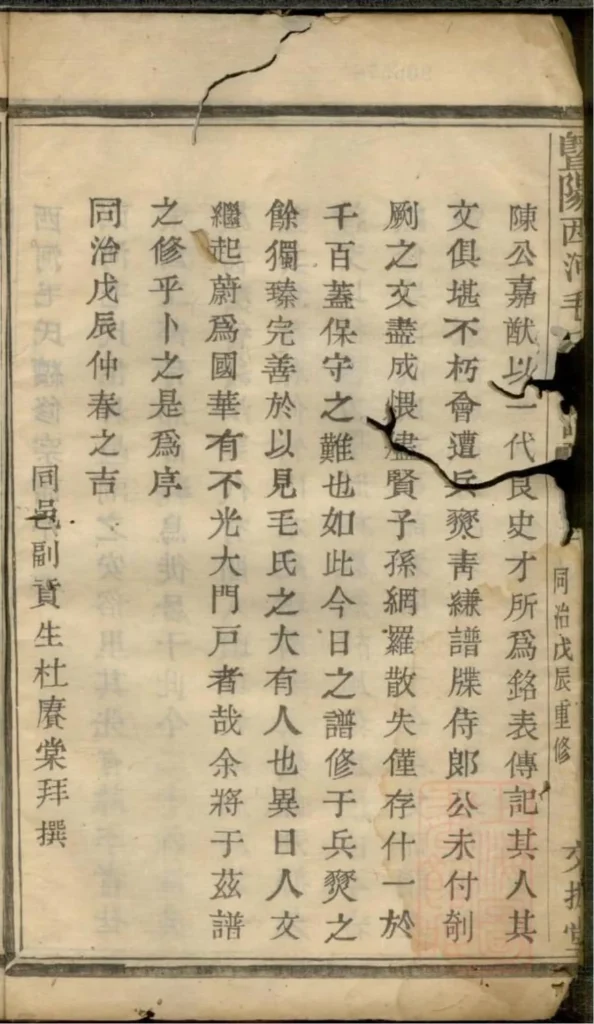 暨陽西河毛
同治戊辰重修
陳公嘉猷以一代良史才所爲銘表傳記其人其
文俱堪不朽會遭兵燹靑縑譜牒侍郞公未付剞
劂之文盡成煨燼賢子孫網羅散失僅存什一於
千百蓋保守之難也如此今日之譜修于兵燹之
餘獨臻完善於以見毛氏之大有人也異日人文
繼起蔚爲國華有不光大門戸者哉余將于茲譜
之修乎卜之是爲序
同治戊辰仲春之吉
同邑副貢生杜賡棠拜撰